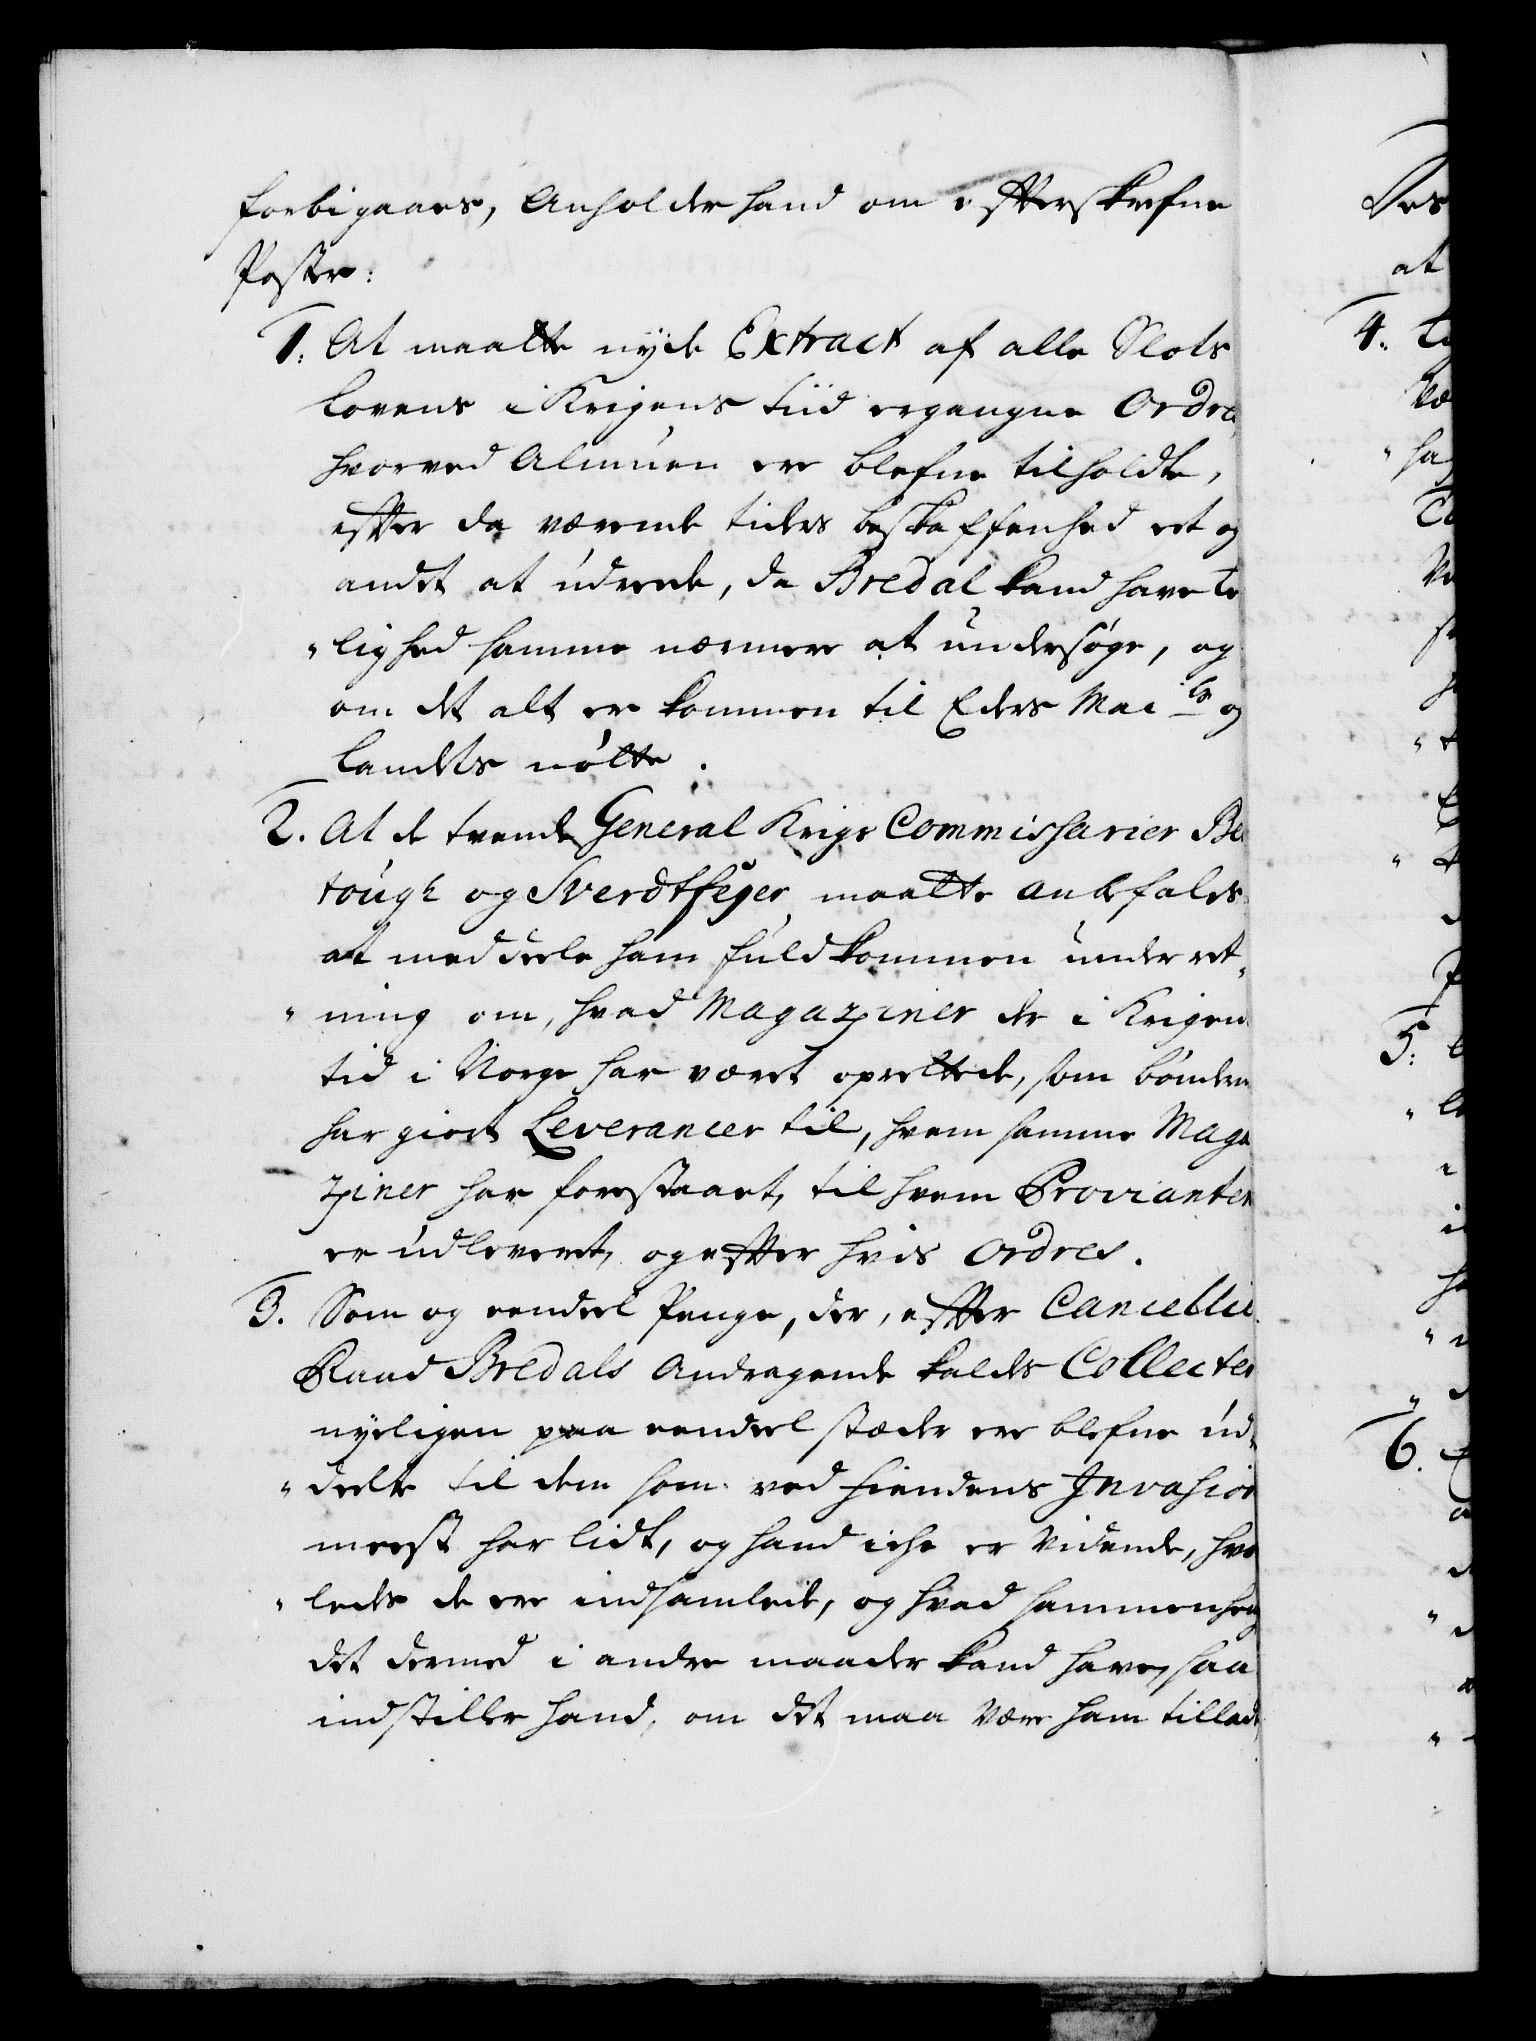 forbigaaes, Anholder hand om efterskrefne
Poster:
1. At maatte nyde Extract af alle Slots
Lovens i Krigens tiid ergangne Ordre,
hvorved Almuen ere blefne tilholdte,
efter da værende tiders beskaffenhed eet og
andet at udreede, da Bredal kand have Le
"lighed samme nærmere at undersøge, og
om det alt er kommen til Eders Mai.ts og
Landets nøtte.
2. At de tvende General Krigs Commissarier Be
tough og Sverdtfeger maatte anbefales
at meddeele ham fuldkommen underret„
„ning om, hvad Magaziner der i Krigens
tid i Norge har været oprettede, som bønderne
har giort Leverancer til, hvem samme Maga
ziner har forestaaet, til hvem Provianten
er udleveret, og efter hvis Ordres.
3. Som og eendeel Penge, der, efter Cancellie
Raad Bredals Andragende kaldes Collecter
nyeligen paa eendeel stæder ere blefne ud„
„deelte til dem som ved Fiendens Invasion
meest har lidt, og hand iche er vidende, hvor
„ledes de ere indsamlede, og hvad sammenheng
det dermed i andre maader kand have, saa
indstiller hand, om det maa være ham tilladt,
Des
at
4.
5.
6.